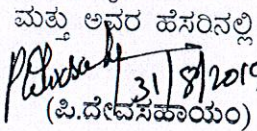 ಮತ್ತು ಅವರ ಹೆಸರಿನಲ್ಲಿ
31/8/2019
(ಪಿ.ದೇವಸಹಾಯಂ)